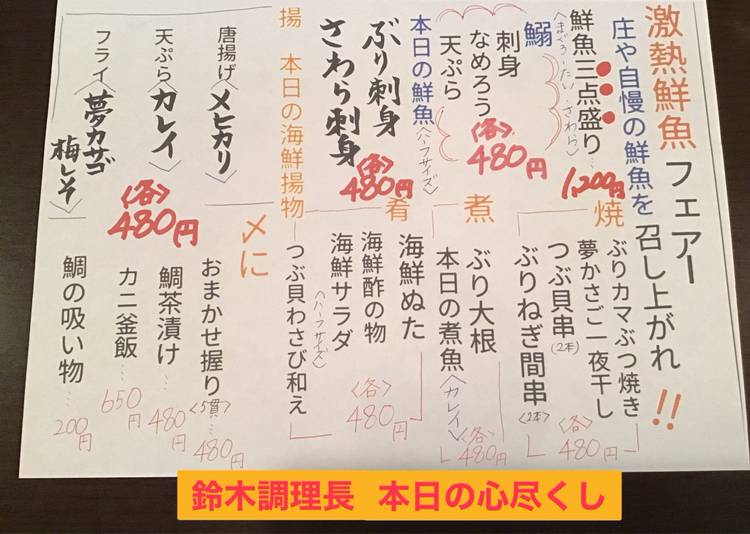 激熱鮮魚フェアー
庄や自慢の鮮魚を召し上がれ!!
鮮魚三点盛り…1,200円
〈まぐろ・たい・さわら〉
鰯
刺身
なめろう
天ぷら
〈各〉480円
本日の鮮魚〈ハーフサイズ〉
ぶり刺身
さわら刺身
〈各〉480円
揚 本日の海鮮揚物
唐揚げ〈メヒカリ〉
天ぷら〈カレイ〉
フライ〈夢カサゴ梅しそ〉
〈各〉480円
焼
ぶりカマぶつ焼き
夢かさご一夜干し
つぶ貝串(2本)
ぶりねぎ間串〈2本〉
〈各〉480円
煮
ぶり大根
本日の煮魚〈カレイ〉
〈各〉480円
肴
海鮮ぬた
海鮮酢の物
海鮮サラダ〈ハーフサイズ〉
つぶ貝わさび和え
〈各〉480円
〆に
おまかせ握り〈5貫〉…480円
鯛茶漬け…480円
カニ釜飯…650円
鯛の吸い物…200円
鈴木調理長 本日の心尽くし